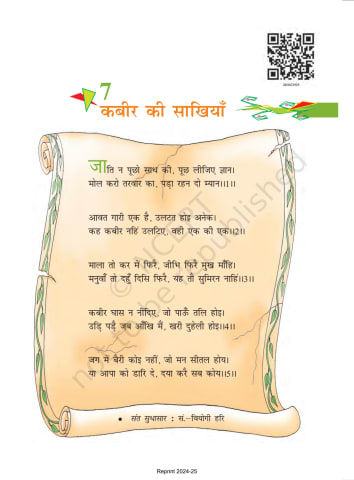 7
कबीर की साखियाँ
जाति न पूछो साध की, पूछ लीजिए ज्ञान।
मोल करो तरवार का, पड़ा रहन दो म्यान।।1।।
आवत गारी एक है, उलटत होइ अनेक।
कह कबीर नहिं उलटिए, वही एक की एक।।2।।
माला तो कर में फिरै, जीभि फिरै मुख माँहि।
मनुवाँ तो दहुँ दिसि फिरै, यह तौ सुमिरन नाहिं।।3।।
कबीर घास न नींदिए, जो पाऊँ तलि होइ।
उड़ि पड़ै जब आँखि मैं, खरी दुहेली होइ।।4।।
जग में बैरी कोइ नहीं, जो मन सीतल होय।
या आपा को डारि दे, दया करै सब कोय।।5।।
• संत सुधासार : सं.–वियोगी हरि
© NCERT
not to be republished
Reprint 2024-25